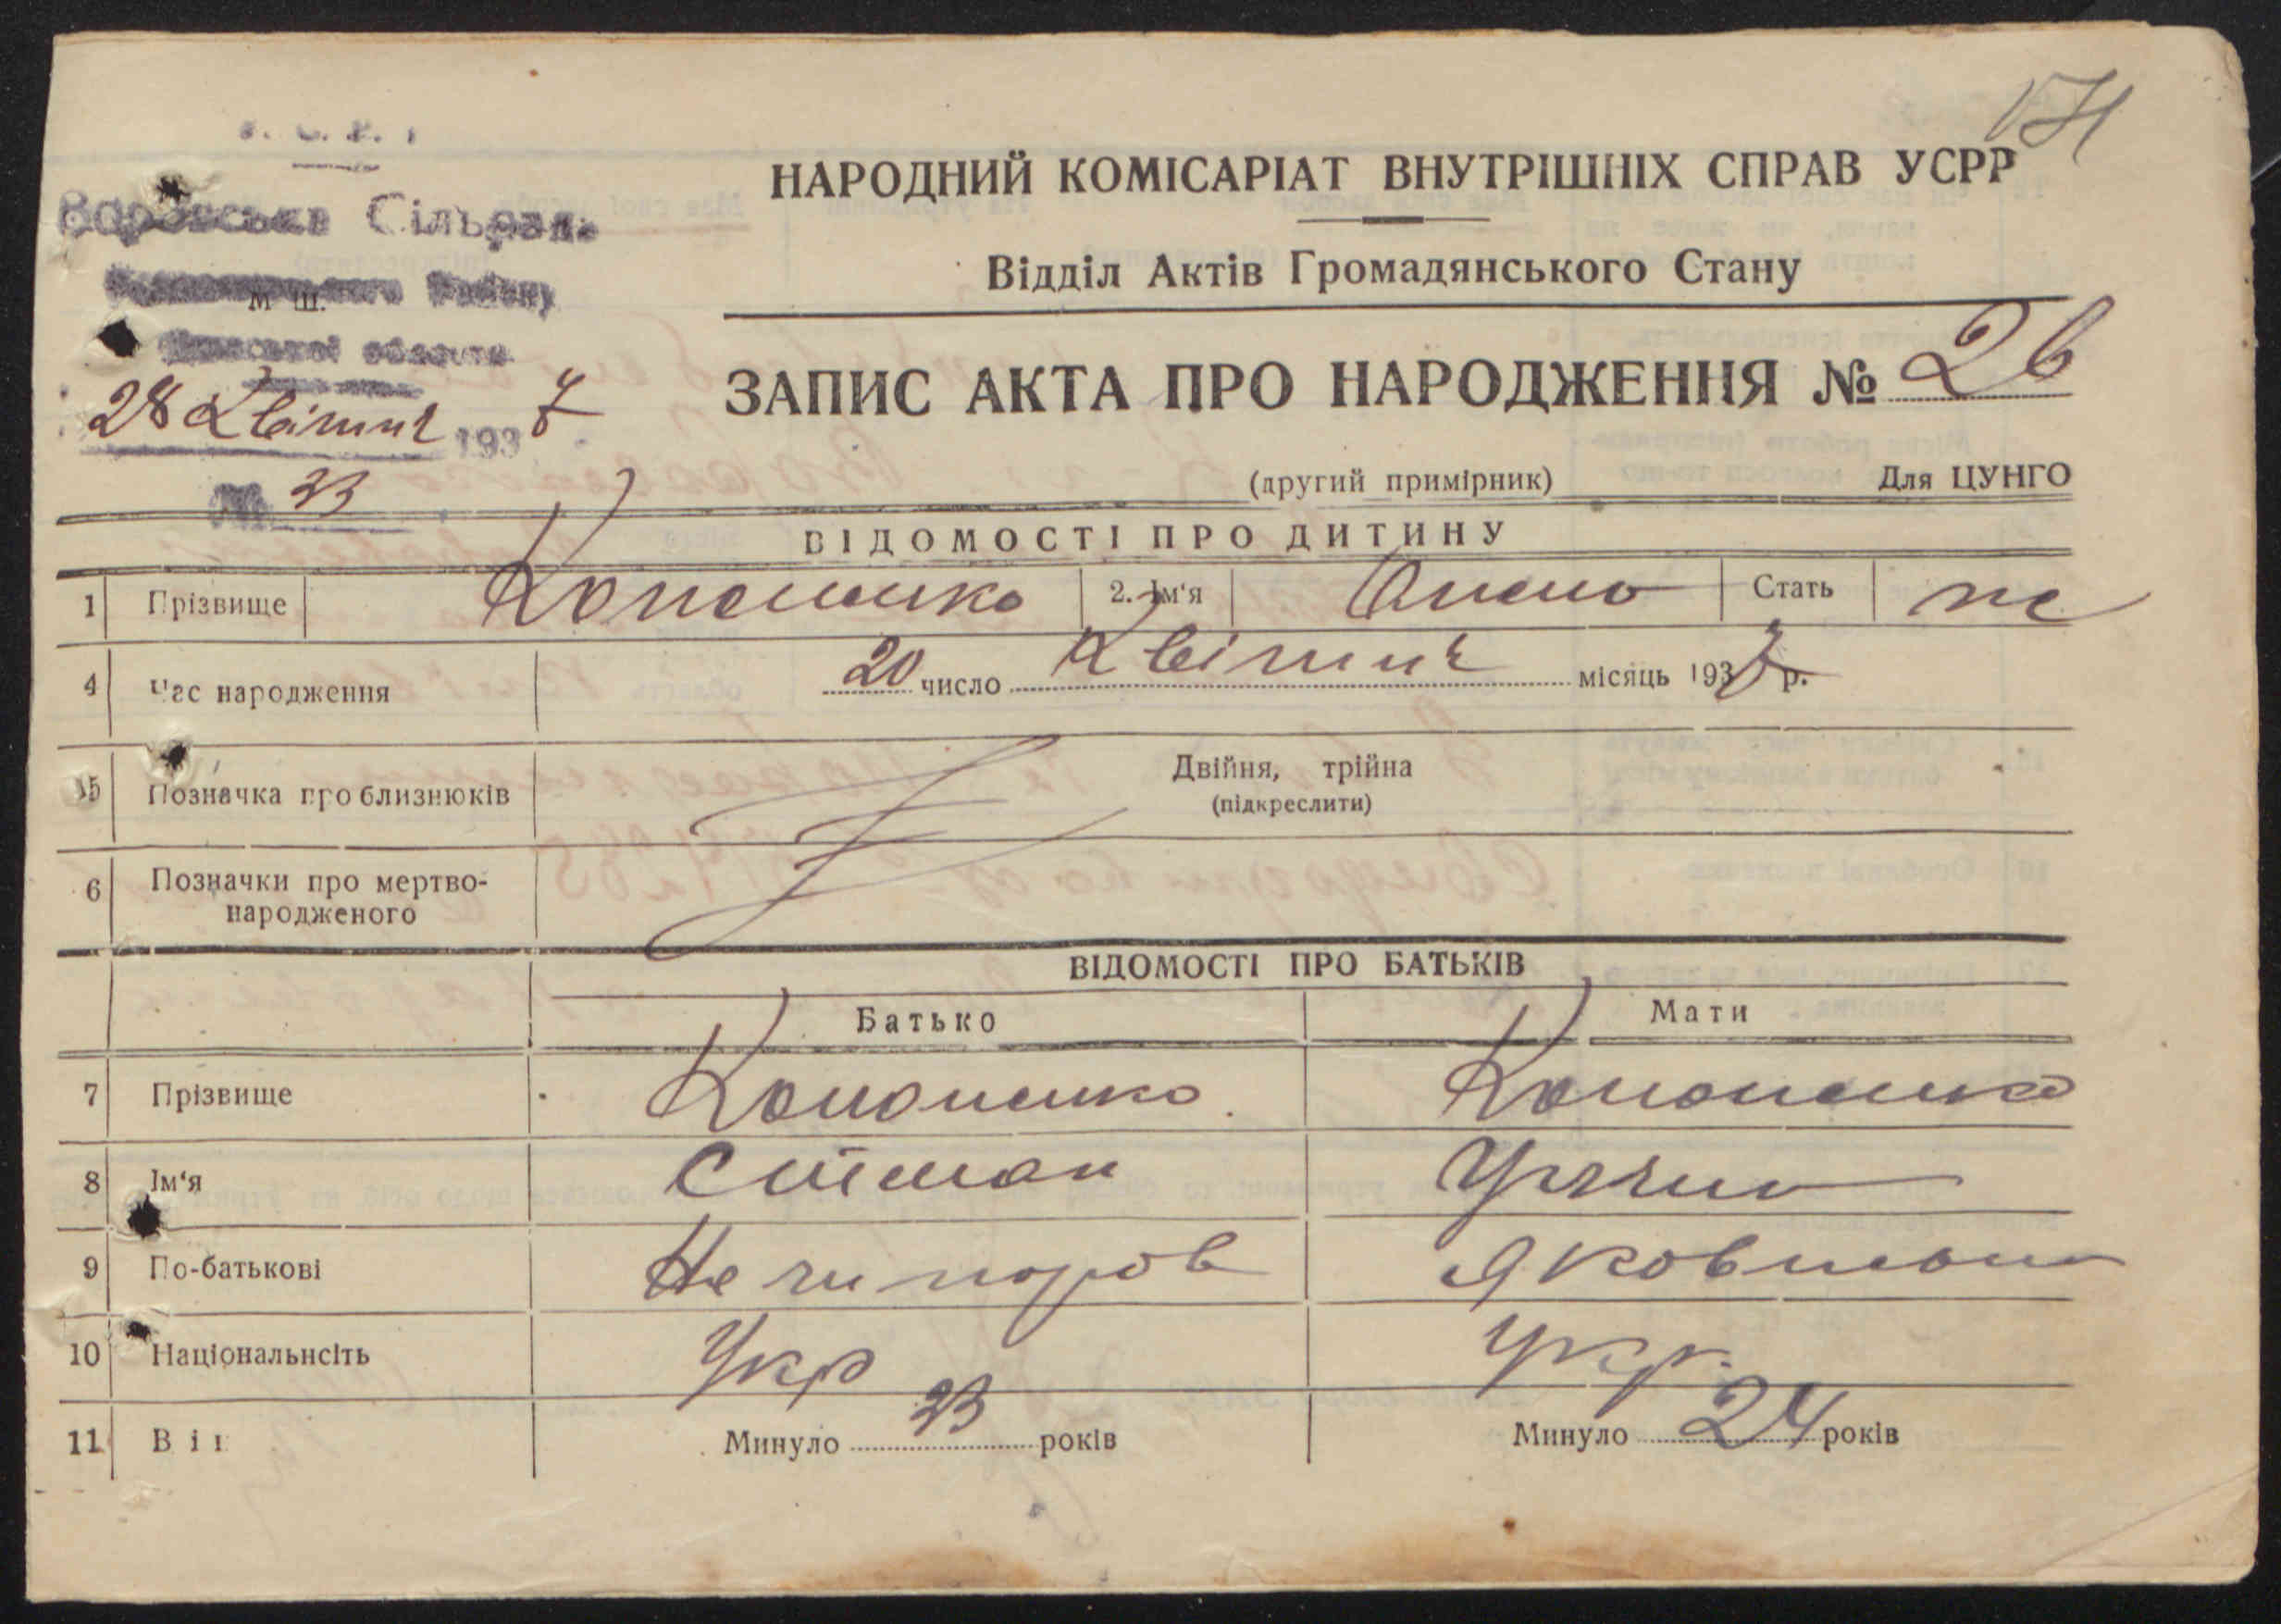 174
НАРОДНИЙ КОМІСАРІАТ ВНУТРІШНІХ СПРАВ УСРР
Сільрада
Відділ Актів Громадянського Стану
М Ш.
області
ЗАПИС АКТА ПРО НАРОДЖЕННЯ № 26
28 Квітня 1937
№ 23
(другий примірник) Для ЦУНГО
ВІДОМОСТІ ПРО ДИТИНУ
1 Прізвище Кононенко 2. Ім'я Стать
4 Час народження 20 число Квітня місяць 1937 р.
5 Позначка про близнюків Двійня, трійна
(підкреслити)
6 Позначки про мертво-
народженого
ВІДОМОСТІ ПРО БАТЬКІВ
Батько Мати
7 Прізвище Кононенко Кононенко
8 Ім'я Степан
9 По-батькові Нечипоров Яковливна
10 Національнсіть Укр Укр.
11 Вік Минуло 23 років Минуло 24 років